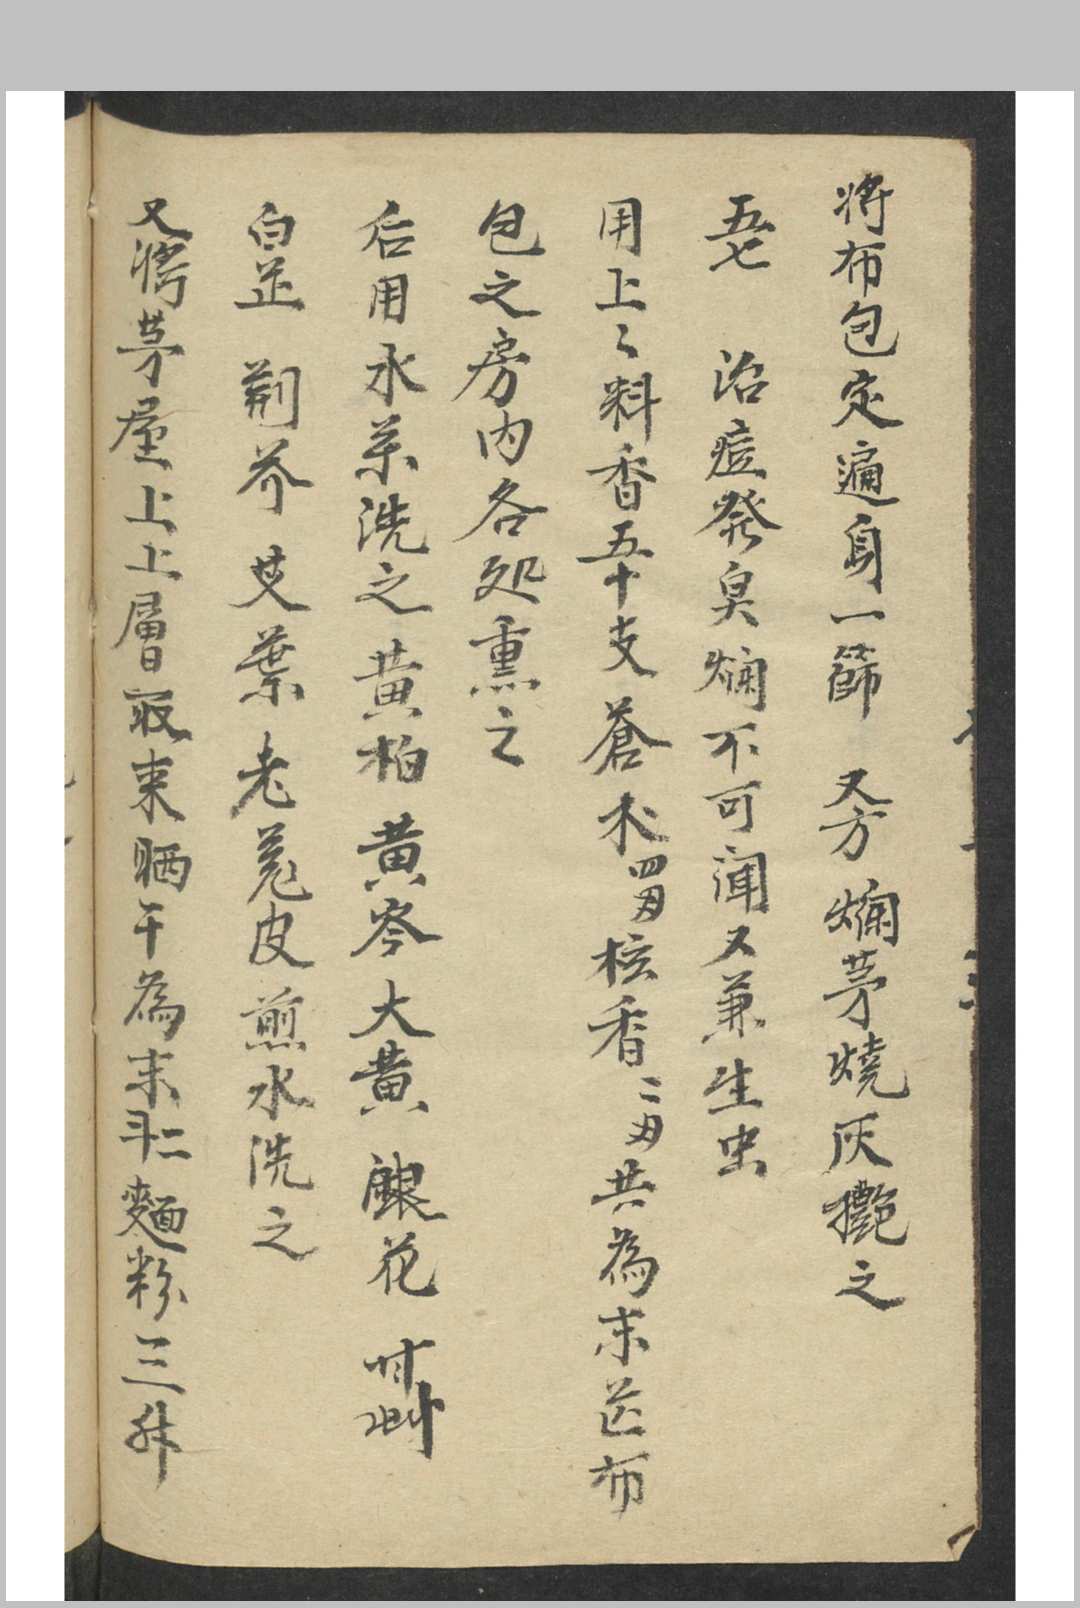 将布包定遍身一篩 又方 爛茅燒灰攤之
五七 治痘發臭爛不可聞又兼生虫
用上〻料香五十支 蒼术四両 桉香二両 共為末 芷布
包之房内各処熏之
后用水药洗之 黄柏 黄岑 大黄 銀花 甘草
白芷 荆芥 艾葉 老莧皮 煎水洗之
又将茅屋上上層取来晒干為末斗二麵粉三升